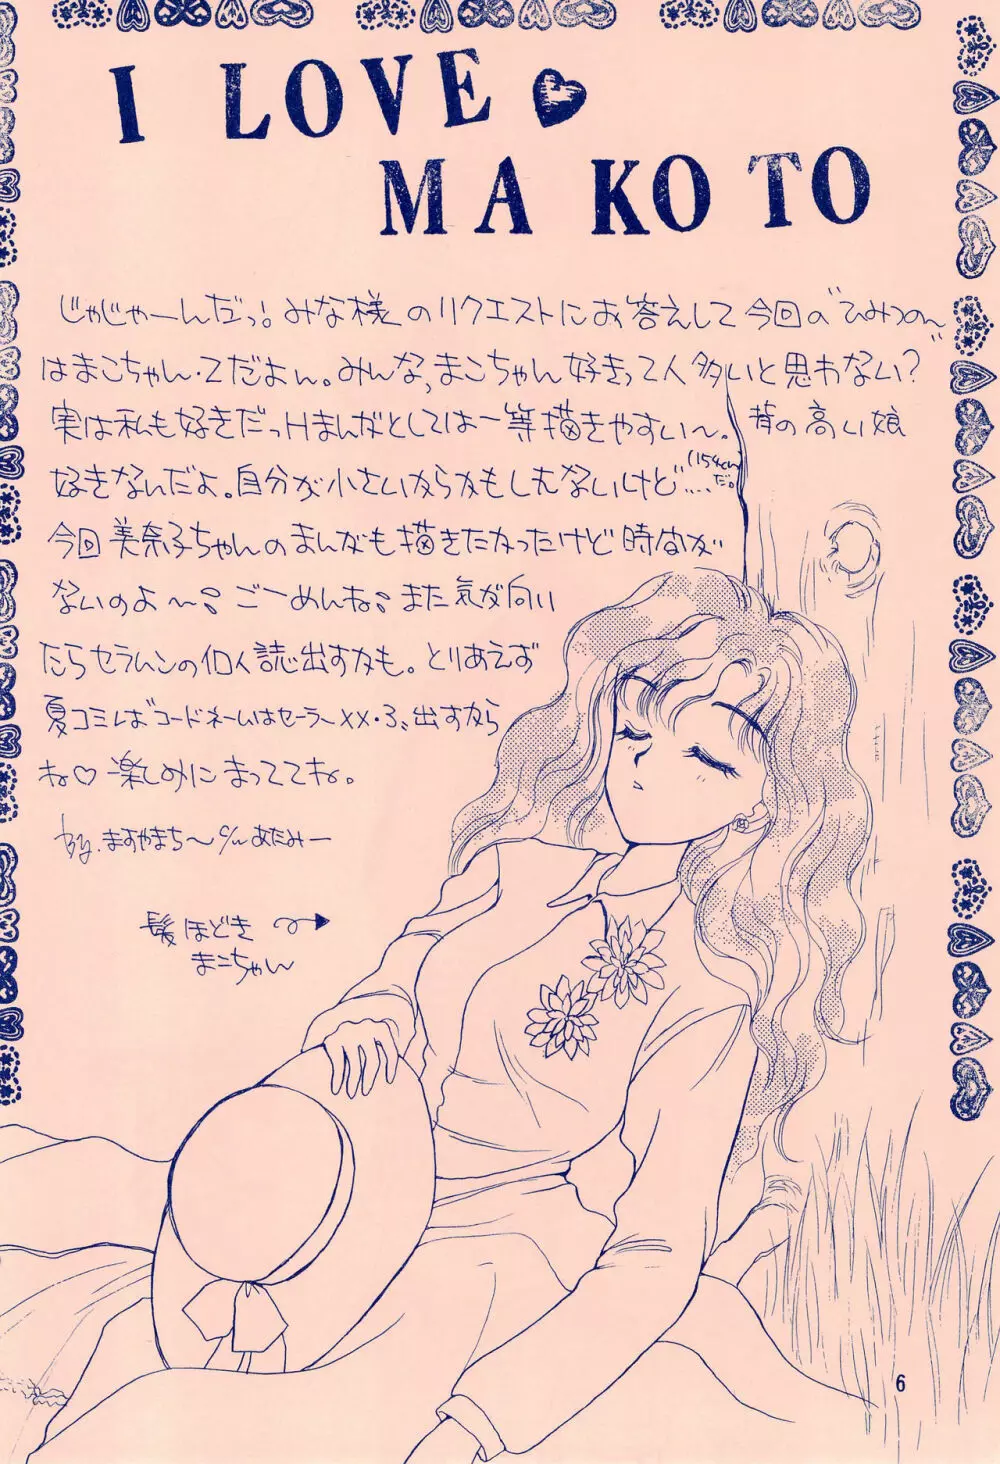 I LOVE
MA KO TO
じゃじゃーんだっ!みな様のリクエストにお答えして今回の“ひみつの〜”
はまこちゃん・Zだよん。みんな、まこちゃん好きって人多いと思わない?
実は私も好きだっHまんがとしては一等描きやすい〜。背の高い娘
好きなんだよ。自分が小さいからかもしんないけど……(154cmだ。)
今回美奈子ちゃんのまんがも描きたかったけど時間が
ないのよ〜。ごーめんね。また気が向い
たらセラムンの個人誌出すかも。とりあえず
夏コミは“コードネームはセーラーXX・3”出すから
ね♡楽しみにまっててね。
by.ますやまち〜
髪ほどき
まこちゃん
6